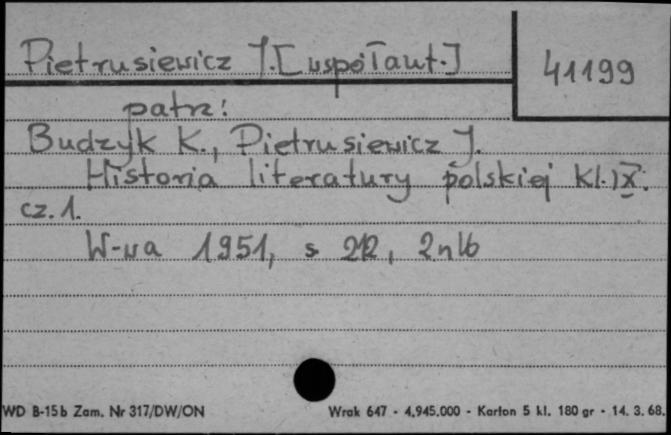 Pietrusiewicz J. [współaut.]
41199
patrz:
Budzyk K., Pietrusiewicz J.
Historia literatury polskiej Kl. IX.
cz. 1.
W-wa 1951, s 212, 2nlb
WD B-15b Zam. Nr 317/DW/ON
Wrak 647 - 4.945.000 - Karton 5 kl. 180 gr - 14. 3. 68.